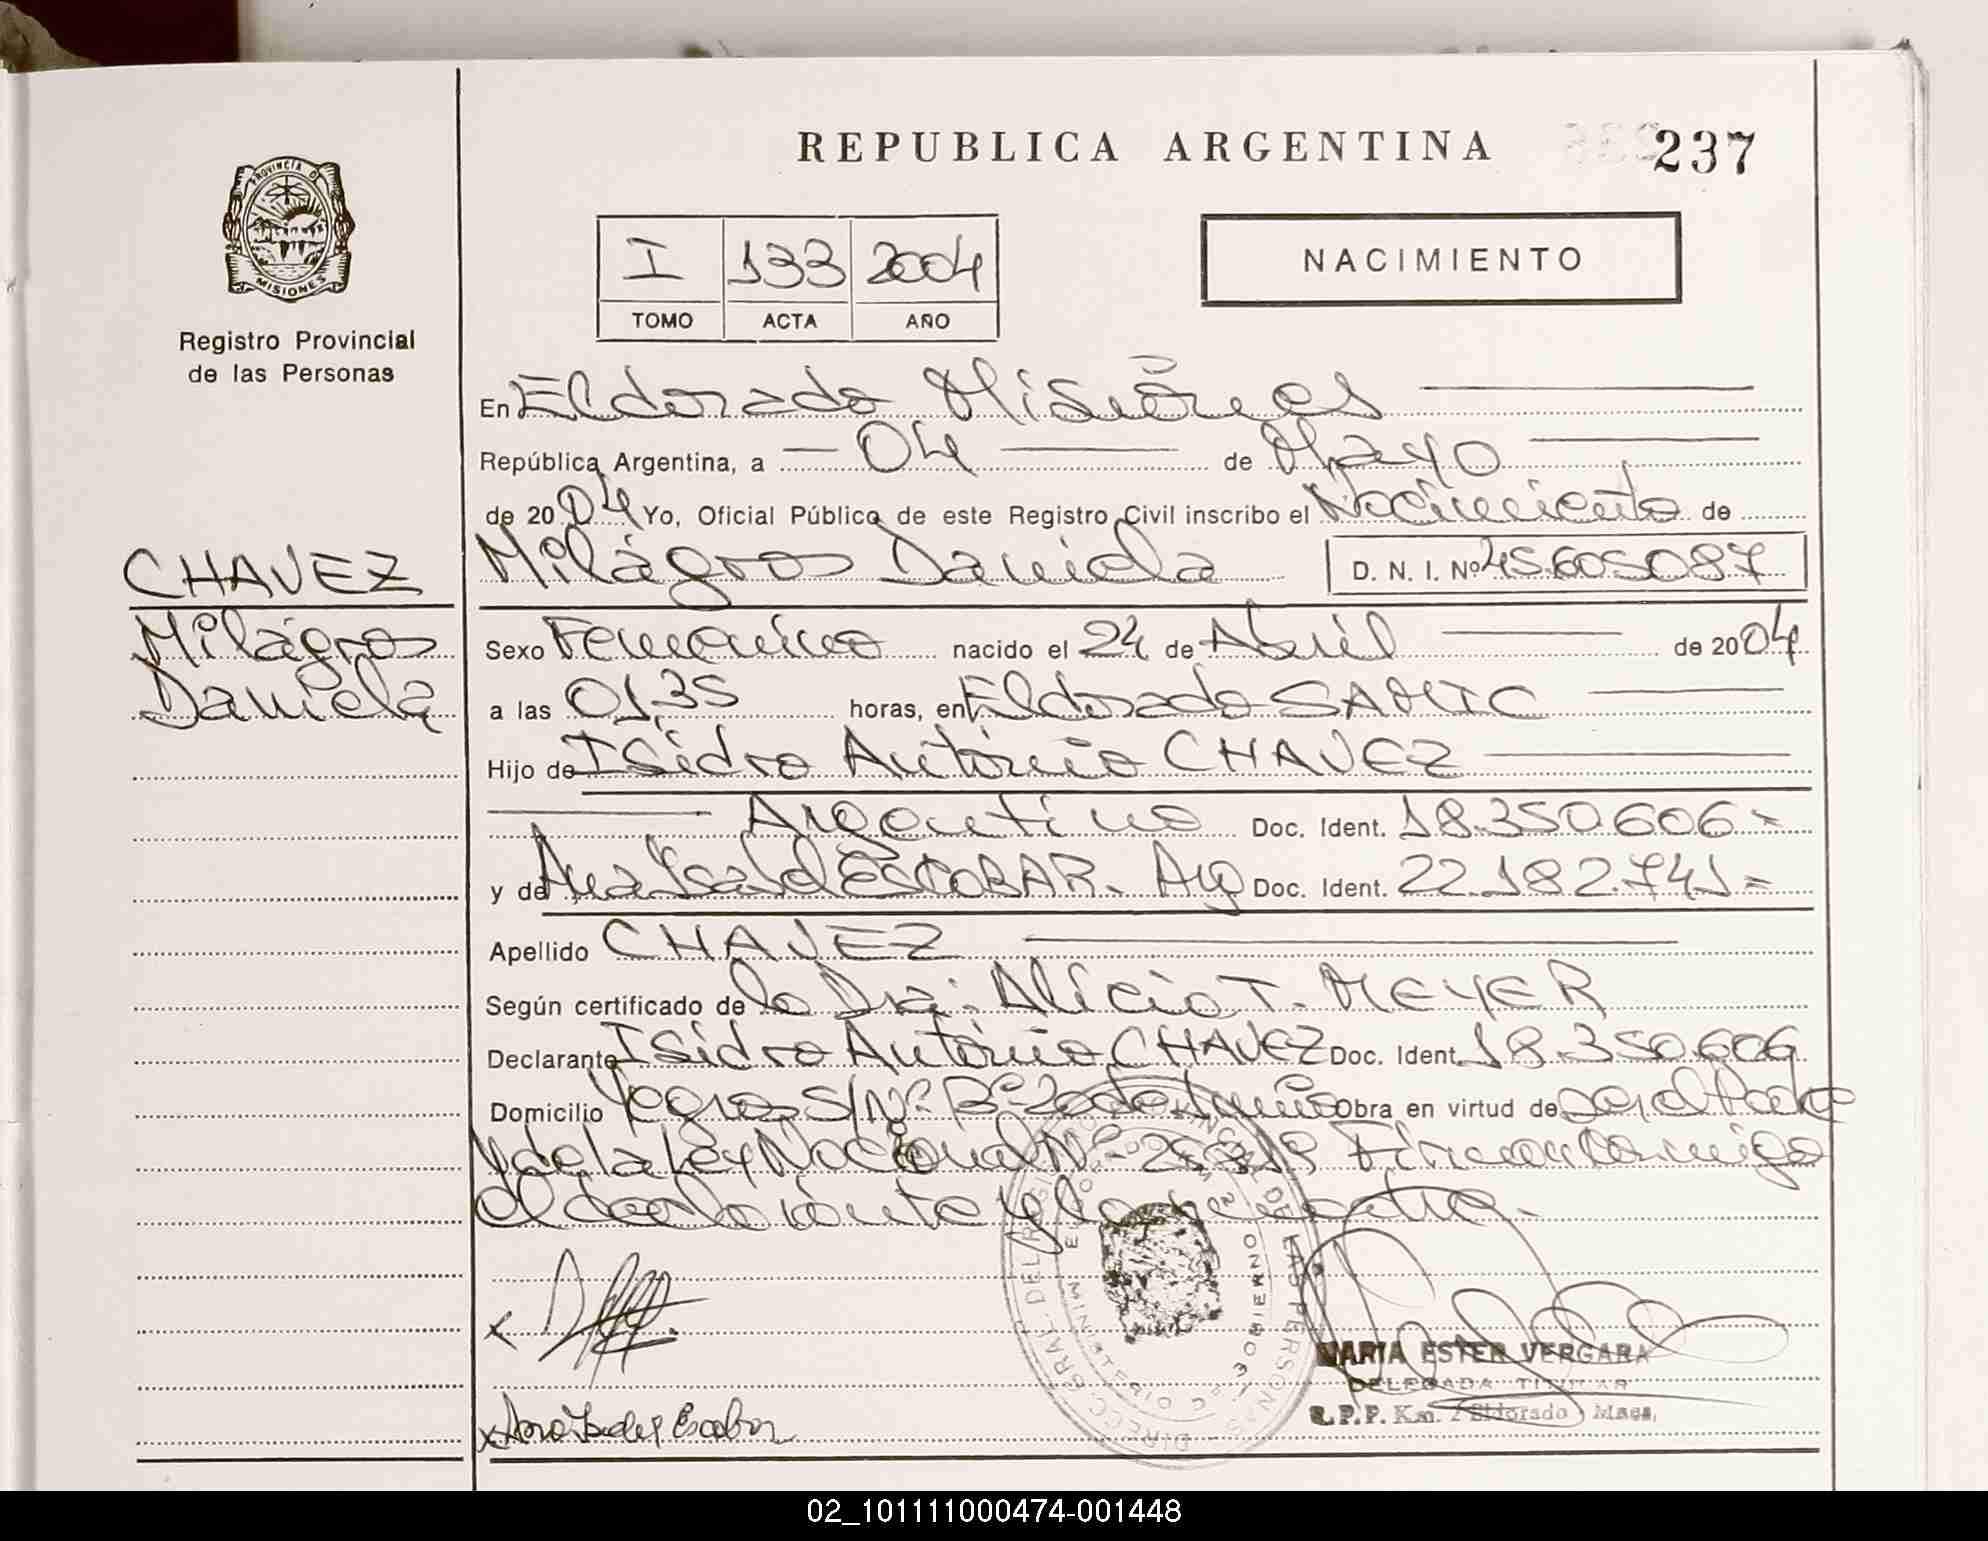 REPUBLICA ARGENTINA
237
PROVINCIA DE MISIONES
Registro Provincial
de las Personas
I 133 2004
TOMO ACTA AÑO
NACIMIENTO
En Eldorado Misiones
República Argentina, a 04 de Mayo
de 2004 Yo, Oficial Público de este Registro Civil inscribo el Nacimiento de
CHAVEZ
Milagros
Daniela
Milagros Daniela D. N. I. Nº 45.605.087
Sexo Femenino nacido el 24 de Abril de 2004
a las 01,35 horas, en Eldorado SAMIC
Hijo de Isidro Antonio CHAVEZ
Argentino Doc. Ident. 18.350.606=
y de Ana Isabel ESCOBAR. Arg Doc. Ident. 22.182.741=
Apellido CHAVEZ
Según certificado de la Dra. Alicia T. MEYER
Declarante Isidro Antonio CHAVEZ Doc. Ident. 18.350.606
Domicilio S/Nº Bº 20 de Junio Obra en virtud de ser el Padre
y de la Ley Nacional Nº Firman conmigo
el declarante y la madre.
MARIA ESTER VERGARA
DELEGADA TITULAR
R.P.P. Km. 2 Eldorado Mnes.
02_101111000474-001448